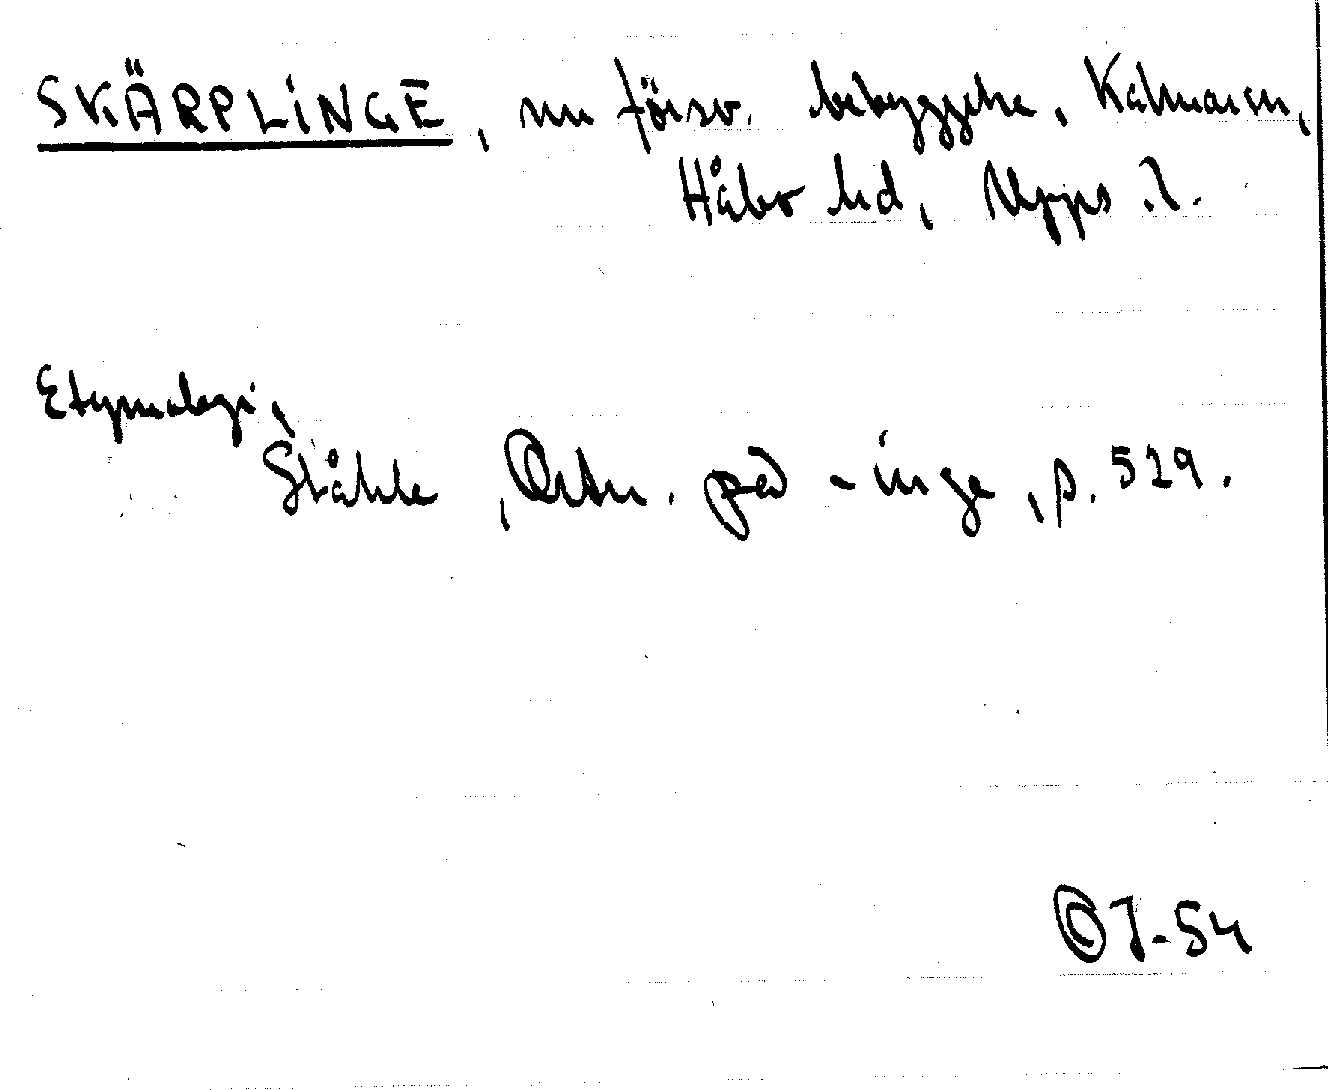 SKÄRPLINGE, nu försv. bebyggelse, Kalmaren,
Håbo hd, Upps. l.
Etymologi,
Ståhle, Ortn. på -inge, p. 529.
©J-54